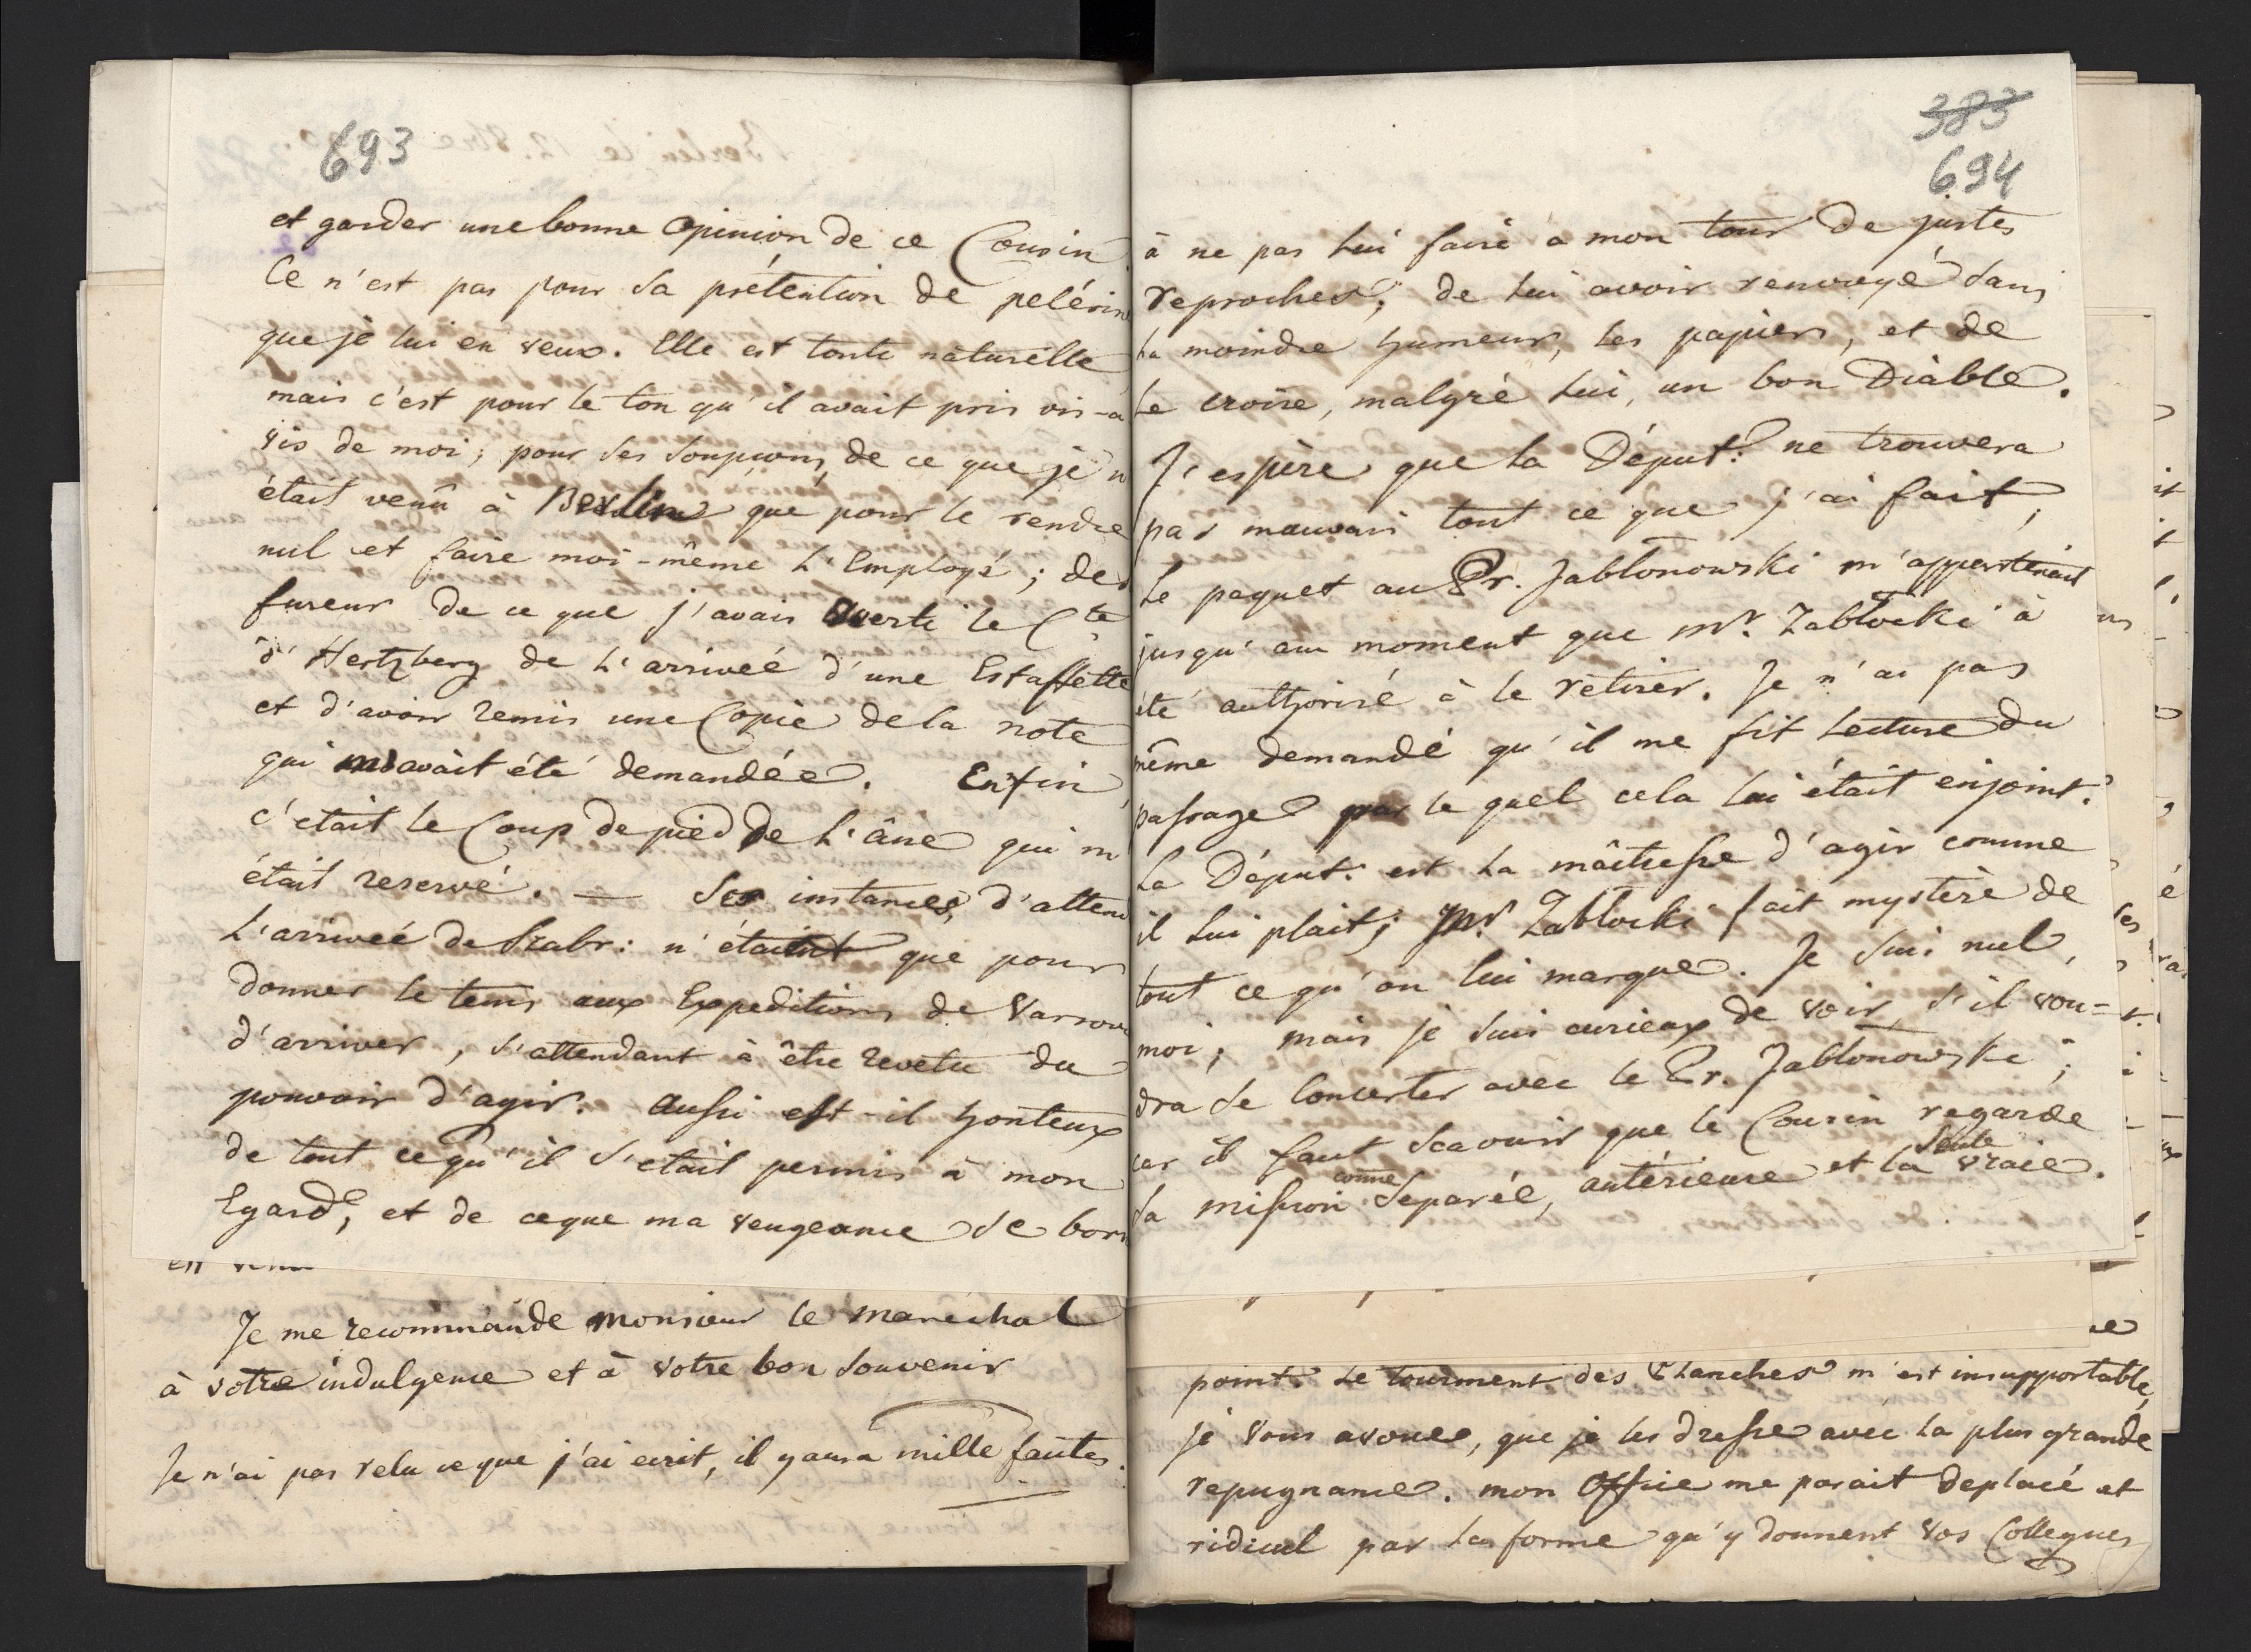 693
et garder une bonne opinion de ce Cousin.
Ce n'est pas pour sa prétention de pelérin
que je lui en veux. Elle est toute naturelle
mais c'est pour le ton qu'il avait pris vis-a
vis de moi; pour ses soupçons, de ce que je n
était venû à Berlin que pour le rendre
nul et faire moi-même L'Employé; des
fureur de ce que j'avais averti le Cte
d'Hertzberg de L'arriveé d'une Estaffette
et d'avoir remis une Copie de la note
qui m'avait été demandée. Enfin,
c'etait le Coup de pied de L'âne qui m
était reservé. — Ses instances, d'atten
L'arriveé de Szabr: n'étaient que pour
donner le tems aux Expeditions de Varsov
d'arriver, s'attendant à être revetu du
pouvoir d'agir. Aussi est-il honteux
de tout ce qu'il s'etait permis à mon
Egard, et de ce que ma vengeance se bor
Je me recommande Monsieur le Marechal
à votre indulgence et à votre bon souvenir
Je n'ai pas relu ce que j'ai ecrit, il y aura mille fautes.
383
694
à ne pas Lui faire a mon tour de justes
reproches; de Lui avoir renvoyé sans
La moindre humeur, Les papiers, et de
Le croire, malgré Lui, un bon Diable.
J'espère que La Déput: ne trouvera
pas mauvais tout ce que j'ai fait,
Le paquet au Pr. Jabłonowski m'appartenait
jusqu'au moment que Mr. Zabłocki à
été authorisé à le retirer. Je n'ai pas
même demandé qu'il me fit Lecture du
passage par le quel cela lui était enjoint.
La Déput: est La maîtresse d'agir comme
il Lui plait; Mr. Zabłocki fait mystère de
tout ce qu'on lui marque. Je suis nul,
moi; mais je suis curieux de voir, s'il vou=
dra se Concerter avec le Pr. Jabłonowski;
car il faut scavoir que le Cousin regarde
sa mission comme Separée, antérieure et la seule vraie.
point. Le tourment des Planches m'est insupportable,
je vous avoue, que je les dresse avec la plus grande
repugnance. mon Office me parait deplacé et
ridicul par La forme qu'y donnent vos Collegues